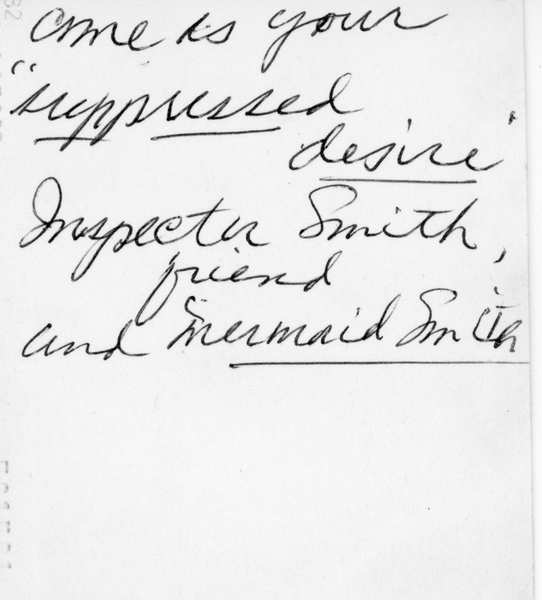 come as your
"suppressed
desire"
Inspector Smith,
friend
and "Mermaid Smith